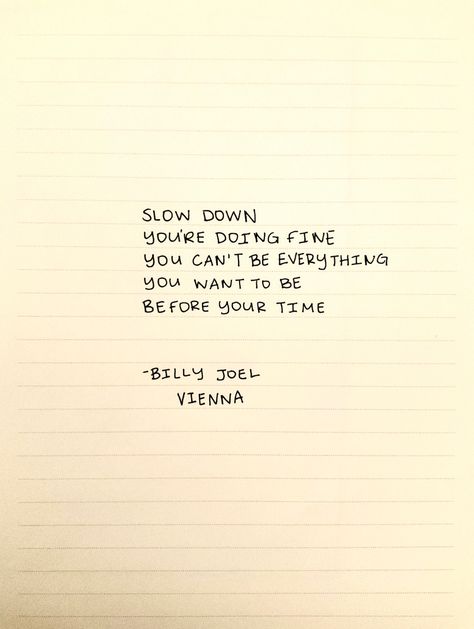 SLOW DOWN
YOU'RE DOING FINE
YOU CAN'T BE EVERYTHING
YOU WANT TO BE
BEFORE YOUR TIME
-BILLY JOEL
VIENNA